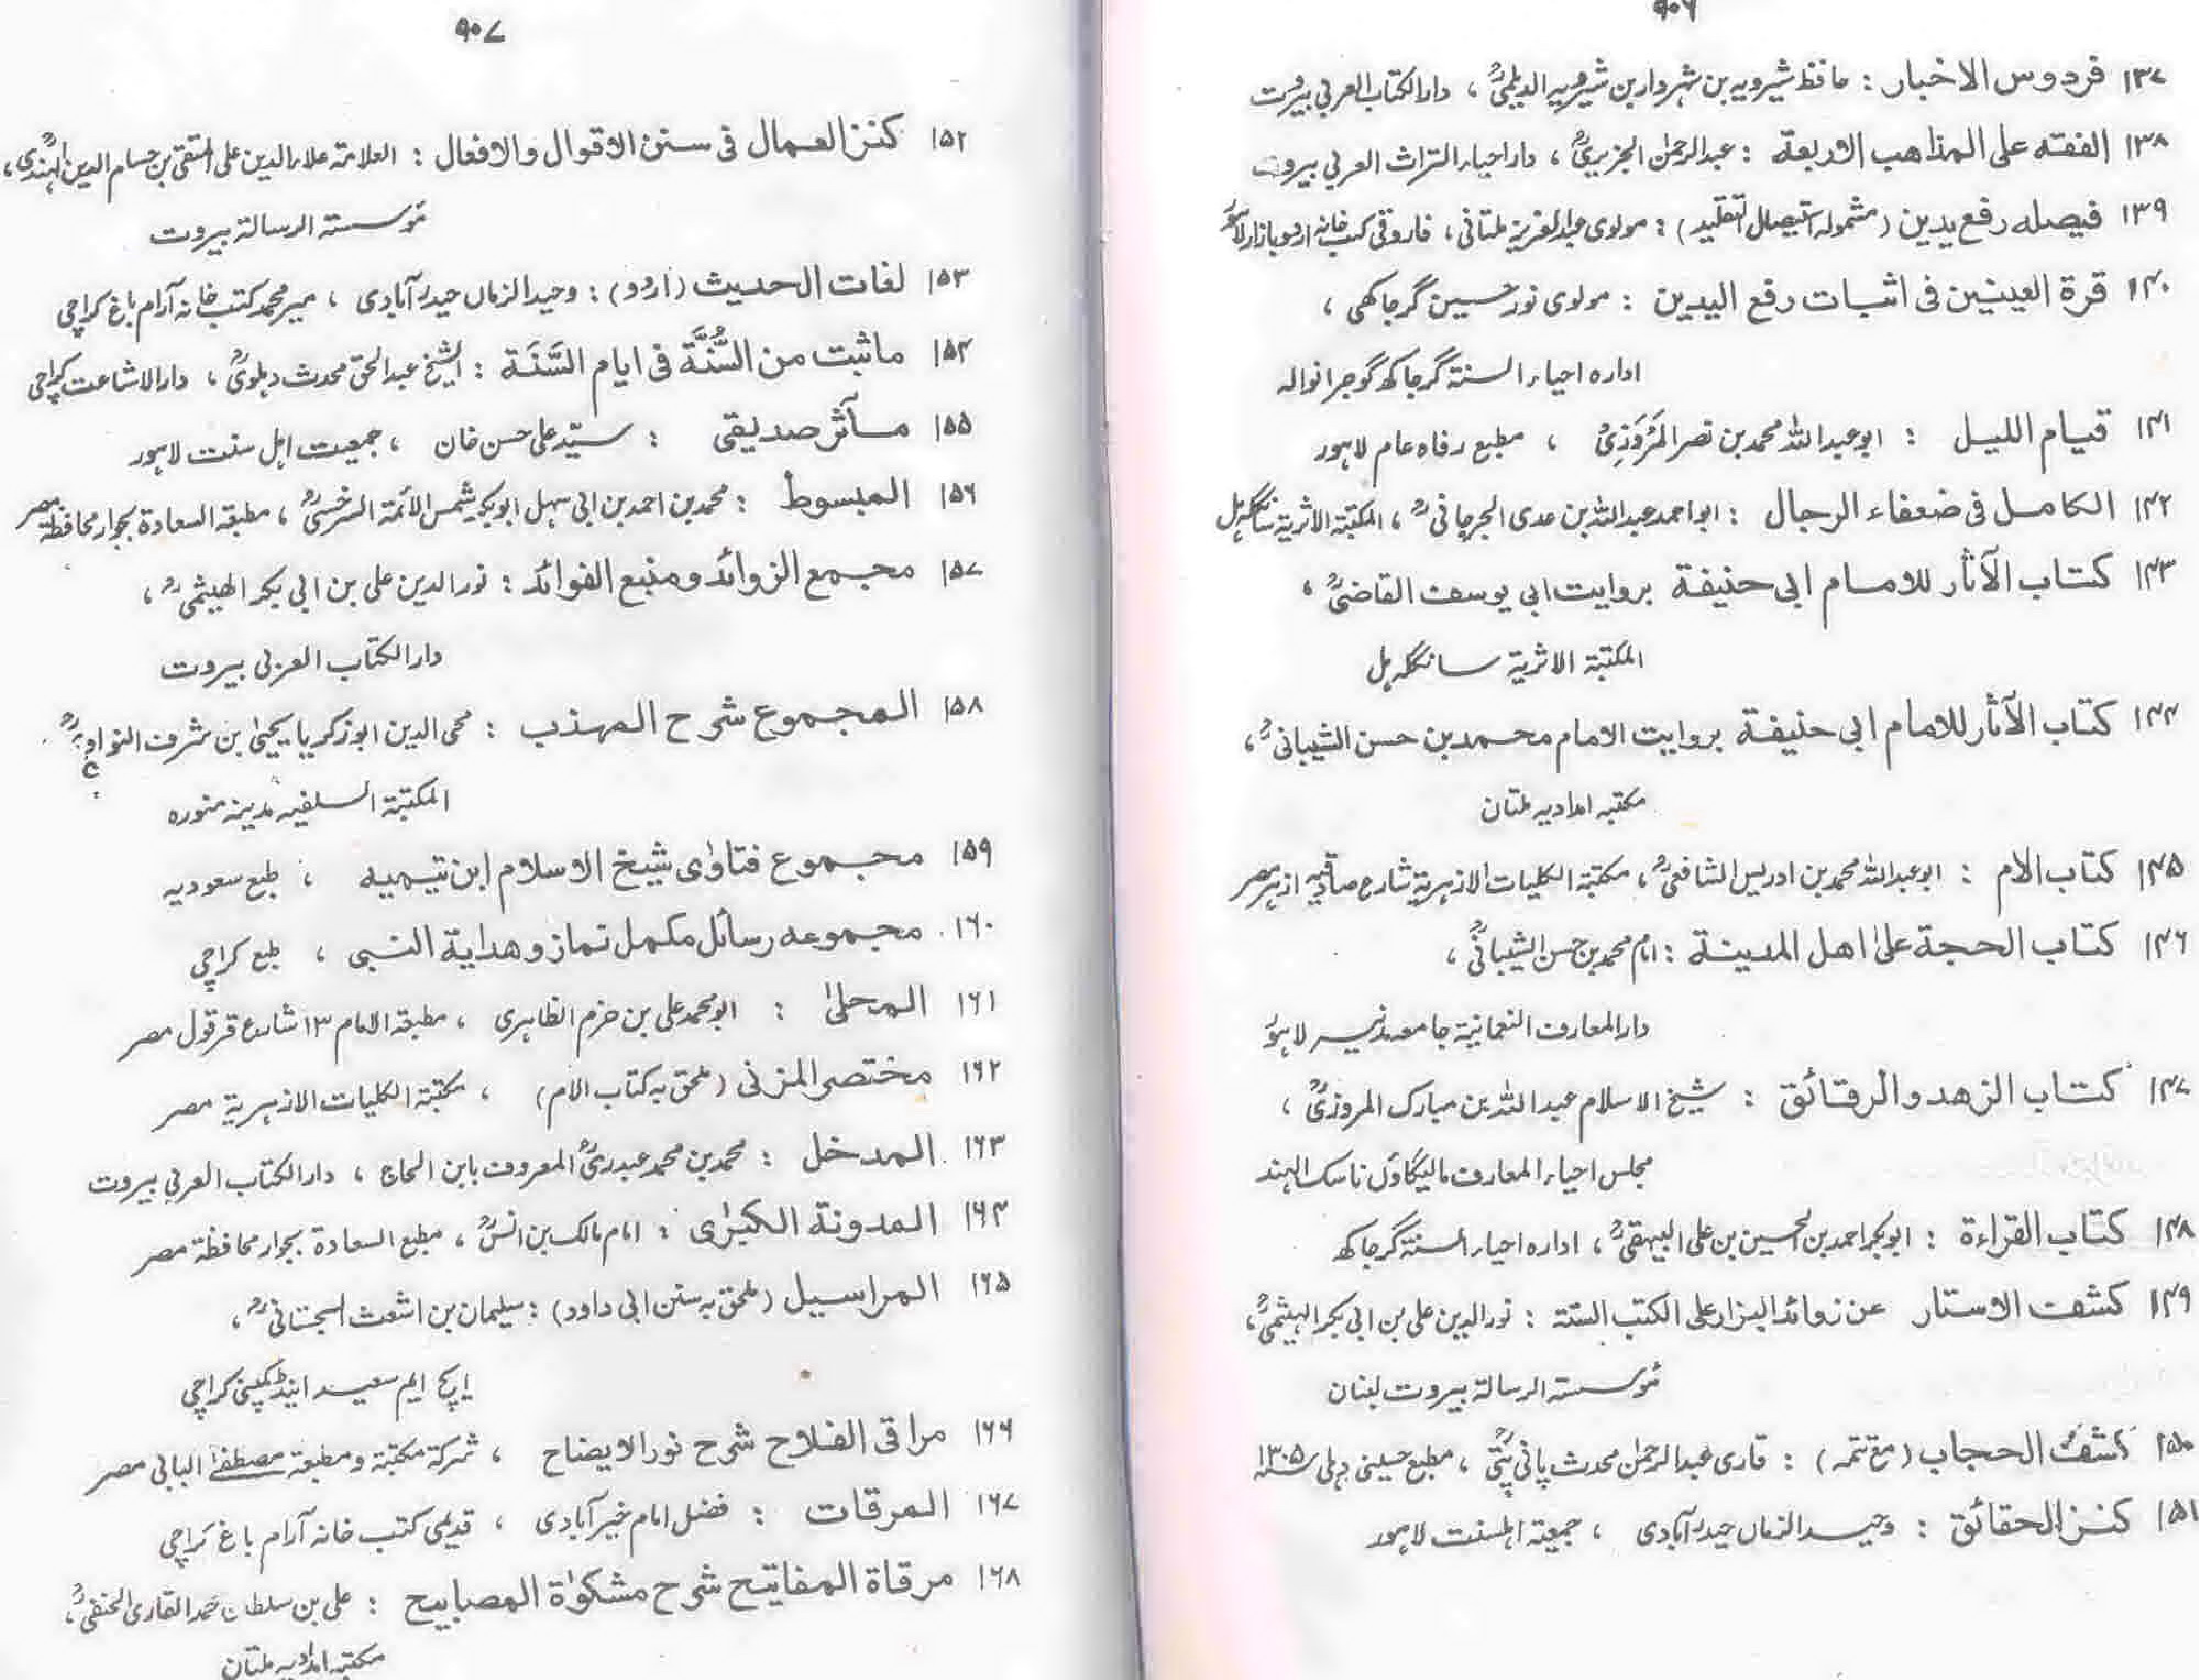 ۹۰۶
۱۳۷ فردوس الاخبار : حافظ شیرویہ بن شہردار بن شیرویہ الدیلمیؒ ، دارالکتاب العربی بیروت
۱۳۸ الفقه على المذاهب الاربعة : عبدالرحمٰن الجزیریؒ ، دار احیاء التراث العربی بیروت
۱۳۹ فیصله رفع یدین (مشمولہ استیصال التقلید) : مولوی عبدالعزیز ملتانی ، فاروقی کتب خانہ اردو بازار لاہور
۱۴۰ قرة العینین فی اثبات رفع الیدین : مولوی نور حسین گرجاکھی ،
ادارہ احیاء السنۃ گرجاکھ گوجرانوالہ
۱۴۱ قیام اللیل : ابو عبداللہ محمد بن نصر المَرْوَزِیؒ ، مطبع رفاہ عام لاہور
۱۴۲ الکامل فی ضعفاء الرجال : ابو احمد عبداللہ بن عدی الجرجانیؒ ، المکتبۃ الاثریۃ سانگلہ ہل
۱۴۳ کتاب الآثار للامام ابی حنیفة بروایت ابی یوسف القاضیؒ ،
المکتبۃ الاثریۃ سانگلہ ہل
۱۴۴ کتاب الآثار للامام ابی حنیفة بروایت الامام محمد بن حسن الشیبانیؒ ،
مکتبہ امدادیہ ملتان
۱۴۵ کتاب الام : ابو عبداللہ محمد بن ادریس الشافعیؒ ، مکتبۃ الکلیات الازہریۃ شارع صادقیہ ازہر مصر
۱۴۶ کتاب الحجة علیٰ اهل المدینة : امام محمد بن حسن الشیبانیؒ ،
دارالمعارف النعمانیۃ جامعہ مدنیہ لاہور
۱۴۷ کتاب الزهد والرقائق : شیخ الاسلام عبداللہ بن مبارک المروزیؒ ،
مجلس احیاء المعارف مالیگاؤں ناسک الہند
۱۴۸ کتاب القراءة : ابوبکر احمد بن الحسین بن علی البیہقیؒ ، ادارہ احیاء السنۃ گرجاکھ
۱۴۹ کشف الاستار عن زوائد البزار علی الکتب الستة : نورالدین علی بن ابی بکر الہیثمیؒ ،
مؤسستہ الرسالۃ بیروت لبنان
۱۵۰ کشف الحجاب (مع تتمہ) : قاری عبدالرحمٰن محدث پانی پتیؒ ، مطبع حسینی دہلی ۱۳۰۵ھ
۱۵۱ کنز الحقائق : وحید الزماں حیدرآبادی ، جمعیۃ اہلسنت لاہور
۹۰۷
۱۵۲ کنز العمال فی سنن الاقوال والافعال : العلامۃ علاء الدین علی المتقی بن حسام الدین الہندیؒ ،
مؤسستہ الرسالۃ بیروت
۱۵۳ لغات الحدیث (اردو) : وحید الزماں حیدرآبادی ، میر محمد کتب خانہ آرام باغ کراچی
۱۵۴ ماثبت من السُّنَّة فی ایام السَّنَة : الشیخ عبدالحق محدث دہلویؒ ، دارالاشاعت کراچی
۱۵۵ مآثر صدیقی : سیّد علی حسن خان ، جمعیت اہل سنت لاہور
۱۵۶ المبسوط : محمد بن احمد بن ابی سہل ابوبکر شمس الأئمۃ السرخسیؒ ، مطبعۃ السعادۃ بجوار محافظۃ مصر
۱۵۷ مجمع الزوائد ومنبع الفوائد : نورالدین علی بن ابی بکر الهیثمیؒ ،
دار الکتاب العربی بیروت
۱۵۸ المجموع شرح المهذب : محی الدین ابوزکریا یحییٰ بن شرف النواویؒ ،
المکتبۃ السلفیہ مدینہ منورہ
۱۵۹ مجموع فتاوٰی شیخ الاسلام ابن تیمیه ، طبع سعودیہ
۱۶۰ مجموعه رسائل مکمل نماز و هدایة النبی ، طبع کراچی
۱۶۱ المحلیٰ : ابو محمد علی بن حزم الظاہری ، مطبعۃ الامام ۱۳ شارع قرقول مصر
۱۶۲ مختصر المزنی (ملحق بہ کتاب الام) ، مکتبۃ الکلیات الازہریۃ مصر
۱۶۳ المدخل : محمد بن محمد عبدریؒ المعروف بابن الحاج ، دار الکتاب العربی بیروت
۱۶۴ المدونة الکبرٰی : امام مالک بن انسؒ ، مطبع السعادۃ بجوار محافظۃ مصر
۱۶۵ المراسیل (ملحق بہ سنن ابی داود) : سلیمان بن اشعث السجستانیؒ ،
ایچ ایم سعید اینڈ کمپنی کراچی
۱۶۶ مراقی الفلاح شرح نور الایضاح ، شرکۃ مکتبۃ ومطبعۃ مصطفیٰ البابی مصر
۱۶۷ المرقات : فضل امام خیرآبادی ، قدیمی کتب خانہ آرام باغ کراچی
۱۶۸ مرقاة المفاتیح شرح مشکوٰة المصابیح : علی بن سلطان محمد القاری الحنفیؒ ،
مکتبہ امدادیہ ملتان